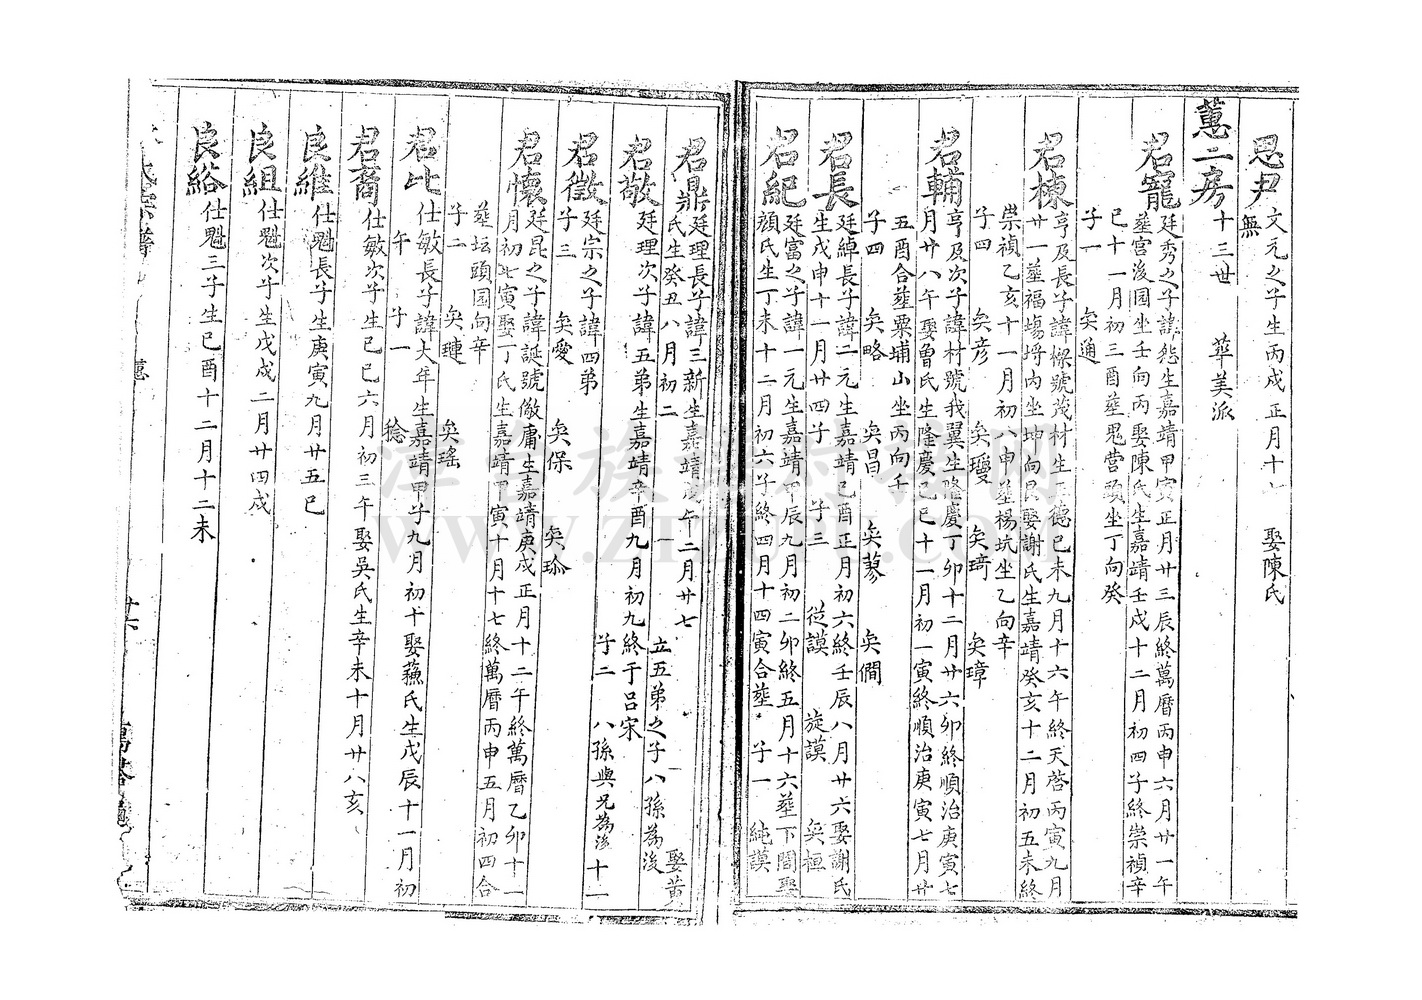 思尹 文元之子生丙戌正月十 娶陳氏
無
蕙二房 十三世 華美派
君寵 廷秀之子諱 生嘉靖甲寅正月廿三辰終萬曆丙申六月廿一午
塟宫後園坐壬向丙娶陳氏生嘉靖壬戌十二月初四子終崇禎辛
巳十一月初三酉塟 营頭坐丁向癸
子一 矣通
君棟 亨及長子諱樑號茂材生 德己未九月十六午終天啓丙寅九月
廿一塟福 坶内坐坤向艮娶謝氏生嘉靖癸亥十二月初五未終
崇禎乙亥十一月初八申塟楊坑坐乙向辛
子四 矣彦 矣璦 矣琦 矣璋
君輔 亨及次子諱材號我翼生隆慶丁卯十二月廿六卯終順治庚寅七
月廿八午娶魯氏生隆慶己巳十一月初一寅終順治庚寅七月廿
五酉合塟粟埔山坐丙向壬
子四 矣略 矣昌 矣蓼 矣僩
君長 廷綽長子諱二元生嘉靖己酉正月初六終壬辰八月廿六娶謝氏
生戊申十一月廿四子 子三 從謨 旋謨 矣桓
君紀 廷富之子諱一元生嘉靖甲辰九月初二卯終五月十六塟下閣娶
顔氏生丁未十二月初六子終四月十四寅合塟 子一 純謨
君鼎 廷理長子諱三新生嘉靖戊午二月廿七 娶黄
氏生癸丑八月初二 立五弟之子八孫為後
君敬 廷理次子諱五弟生嘉靖辛酉九月初九終于吕宋
子二 八孫與兄為後 十一
君徵 廷宗之子諱四弟
子三 矣愛 矣保 矣珎
君懷 廷昆之子諱誕號儆庸生嘉靖庚戌正月十二午終萬曆乙卯十一
月初七寅娶丁氏生嘉靖甲寅十月十七終萬曆丙申五月初四合
塟坛頭园向辛
子二 矣璉 矣瑤
君比 仕敏長子諱大年生嘉靖甲子九月初十娶蘓氏生戊辰十一月初
午 子一 稔
君裔 仕敏次子生己巳六月初三午娶吳氏生辛未十月廿八亥
良維 仕魁長子生庚寅九月廿五巳
良組 仕魁次子生戊戌二月廿四戌
良綌 仕魁三子生己酉十二月十二未
宗譜 蕙 廿六
漳台族譜对接网
WWW.ZTZUPU.COM